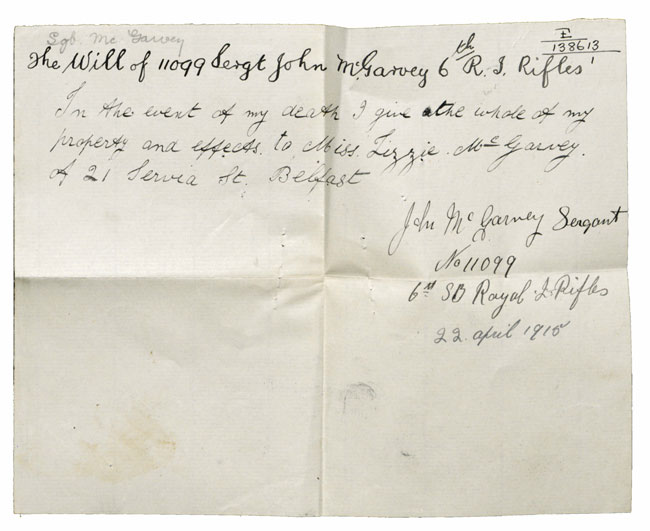 Sgt. Mc Garvey
E
138613
The Will of 11099 Sergt John McGarvey 6th R. I. Rifles
In the event of my death I give the whole of my
property and effects. to Miss. Lizzie. Mc Garvey.
of 21 Servia St. Belfast
John Mc Garvey Sergant
No 11099
6th SB Royal I. Rifles
22 april 1915